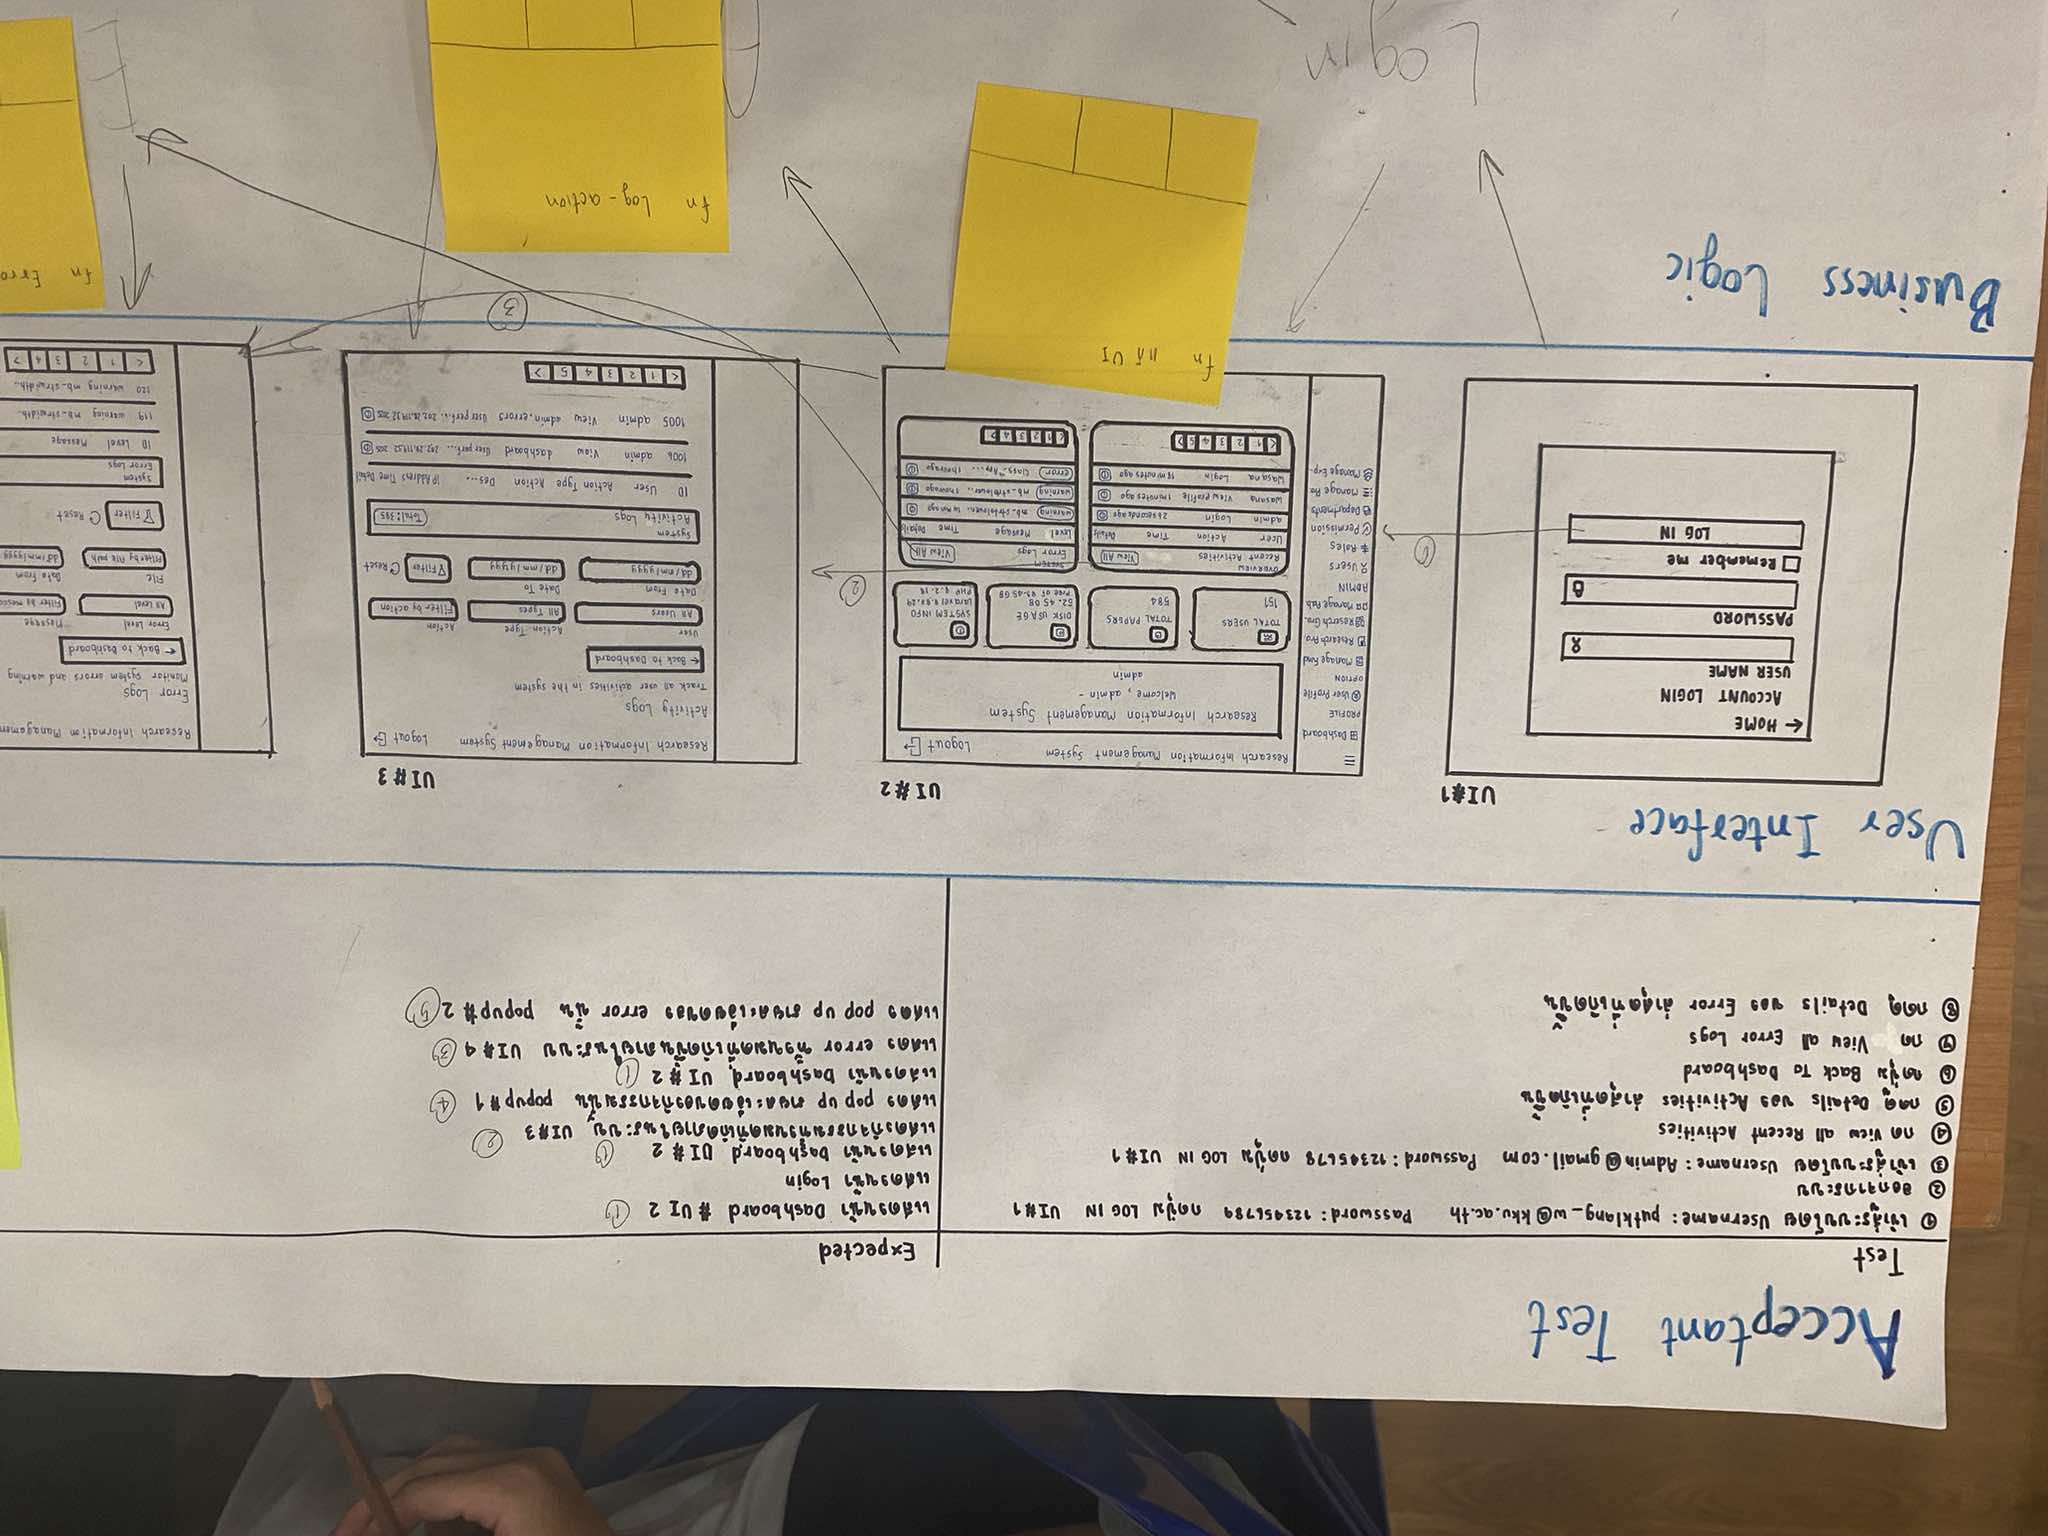 Acceptant Test
Test
Expected
① เข้าสู่ระบบโดย Username : putklang_w@kku.ac.th Password : 123456789 กดปุ่ม LOG IN UI#1
แสดงหน้า Dashboard # UI 2 ①
② ออกจากระบบ
แสดงหน้า Login
③ เข้าสู่ระบบโดย Username : Admin@gmail.com Password : 12345678 กดปุ่ม LOG IN UI#1
แสดงหน้า Dashboard UI # 2 ①
④ กด View all Recent Activities
แสดงกิจกรรมทั้งหมดที่เกิดภายในระบบ UI#3 ②
⑤ กดดู Details ของ Activities ล่าสุดที่เกิดขึ้น
แสดง pop up รายละเอียดของกิจกรรมนั้น popup#1 ④
⑥ กดปุ่ม Back To Dashboard
แสดงหน้า Dashboard UI # 2 ①
⑦ กด View all Error Logs
แสดง error ทั้งหมดที่เกิดขึ้นภายในระบบ UI #4 ③
⑧ กดดู Details ของ Error ล่าสุดที่เกิดขึ้น
แสดง pop up รายละเอียดของ error นั้น popup# 2 ⑤
User Interface
UI#1
← HOME
ACCOUNT LOGIN
USER NAME
PASSWORD
Remember me
LOG IN
①
UI #2
Research Information Management System
Logout
Dashboard
PROFILE
User Profile
OPTION
Manage Fund
Research Pro
Research Gro..
Manage Pub.
ADMIN
Users
Roles
Permission
Departments
Manage Ro
Manage Exp..
Research Information Management System
Welcome, admin -
admin
TOTAL USERS
151
TOTAL PAPERS
584
DISK USAGE
52.45 GB
SYSTEM INFO
OVERVIEW
Recent Activities
View All
User Action Time Details
admin Login 26 seconds ago
Wasana View profile 1 minutes ago
Wasana Login 18 minutes ago
< 1 2 3 4 5 >
SYSTEM
Error Logs
View All
Level Message Time Details
warning
warning
error
< 1 2 3 4 >
②
UI # 3
Research Information Management System
Logout
Activity Logs
Track all user activities in the system
← Back to Dashboard
User
Action Type
Action
All Users
All Types
Filter by action
Date From
Date To
dd/mm/yyyy
dd/mm/yyyy
Filter
Reset
System
Activity Logs
Total: 385
ID User Action Type Action Des... IP Address Time Detail
1006 admin View dashboard User perf...
1005 admin View admin, errors User perf...
< 1 2 3 4 5 >
Research Information Managemen
Error Logs
Monitor system errors and warning
← Back to Dashboard
Error Level
Message
All Level
Filter by messa
File
Date From
Filter by file path
dd/mm/yyyy
Filter
Reset
System
Error Logs
ID Level Message
119 warning mb_strwidth.
120 warning mb_strwidth..
< 1 2 3 4 >
③
Business Logic
fn แก้ UI
fn Log-action
fn Erro
Log in